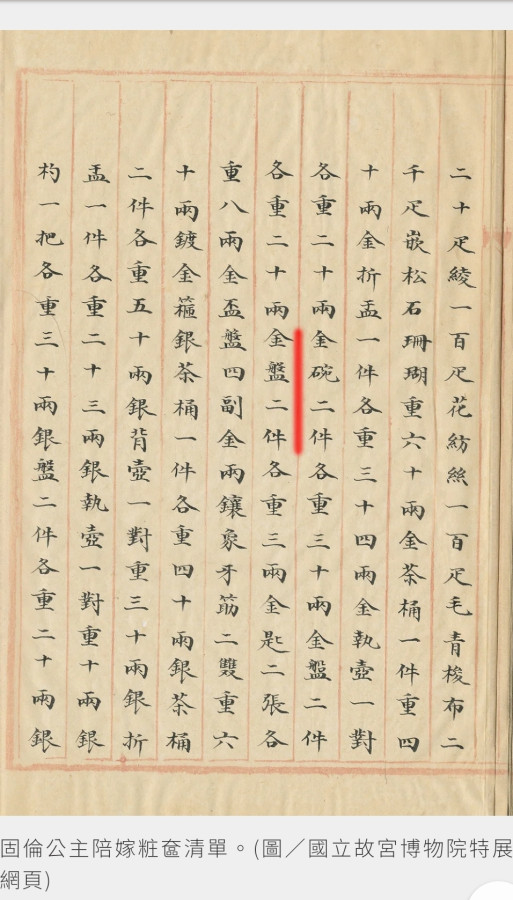 二十疋綾一百疋花紡絲一百疋毛青梭布二
千疋嵌松石珊瑚重六十兩金茶桶一件重四
十兩金折盂一件各重三十四兩金執壺一對
各重二十兩金碗二件各重三十兩金盤二件
各重二十兩金盤二件各重三兩金匙二張各
重八兩金盃盤四副金兩鑲象牙筯二雙重六
十兩鍍金箍銀茶桶一件各重四十兩銀茶桶
二件各重五十兩銀背壺一對重三十兩銀折
盂一件各重二十三兩銀執壺一對重十兩銀
杓一把各重三十兩銀盤二件各重二十兩銀
固倫公主陪嫁粧奩清單。(圖／國立故宮博物院特展
網頁)